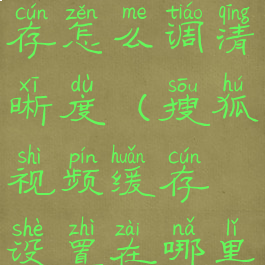 cún zěn me tiáo qīng
存怎么调清
xī dù sōu hú
晰度(搜狐
shì pín huǎn cún
视频缓存
shè zhì zài nǎ lǐ
设置在哪里